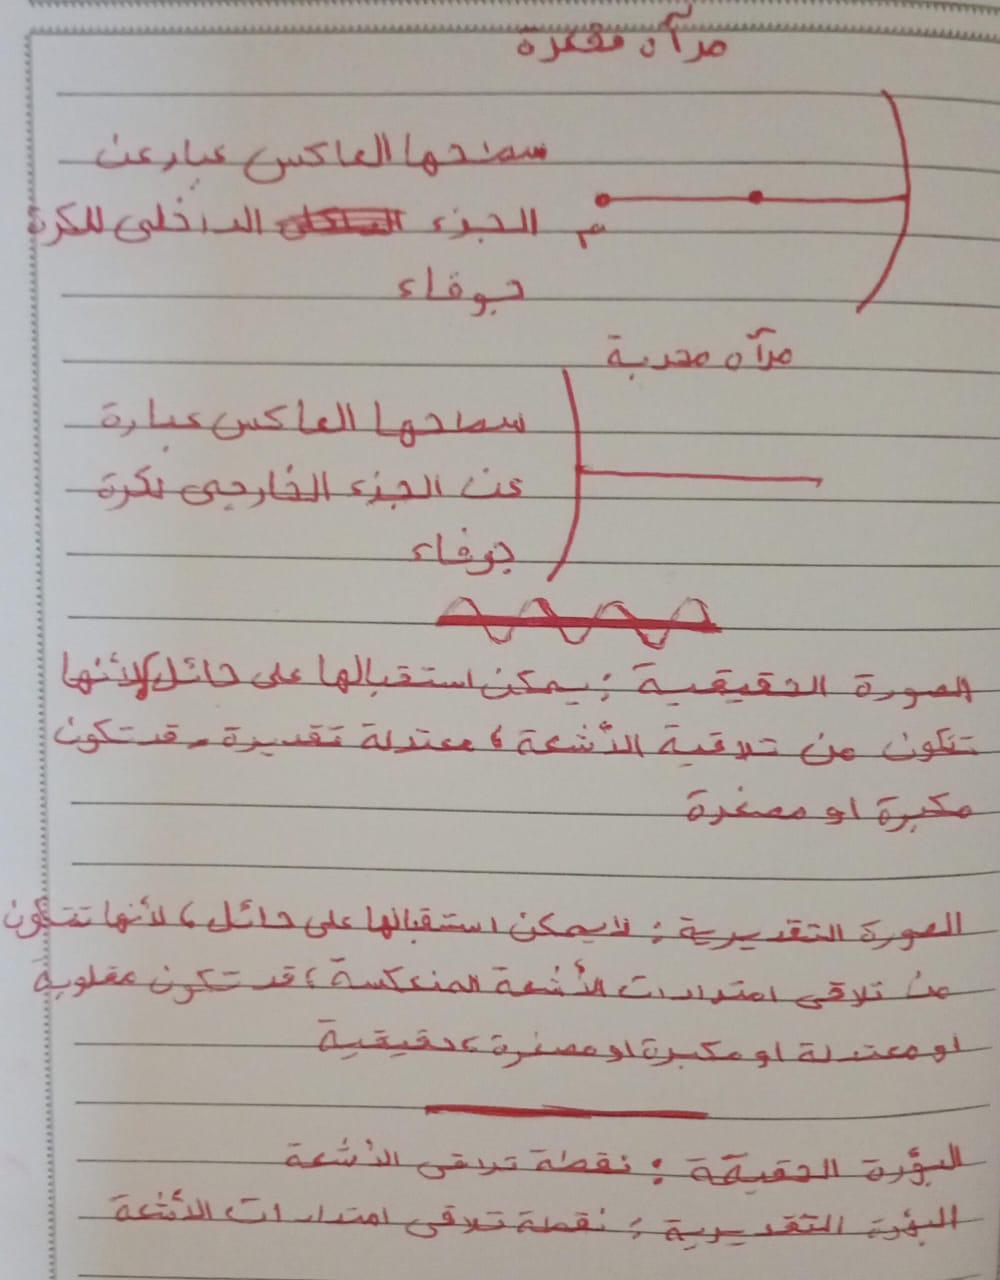 مرآه مقعرة
سطحها العاكس عبار عن
الجزء الداخلى للكرة
م
جوفاء
مرآه محدبة
سطحها العاكس عبارة
عن الجزء الخارجى لكرة
جوفاء
الصورة الحقيقية : يمكن استقبالها على حائل لأنها
تتكون من تلاقية الأشعة ، معتدلة تقديرة - قد تكون
مكبرة او مصغرة
الصورة التقديرية : لا يمكن استقبالها على حائل ، لأنها تتكون
من تلاقى امتدادات الأشعة المنعكسة ، قد تكون مقلوبة
او معتدلة او مكبرة او مصغرة ، حقيقية
البؤرة الحقيقة : نقطة تلاقى الأشعة
البؤرة التقديرية : نقطة تلاقى امتدادات الأشعة